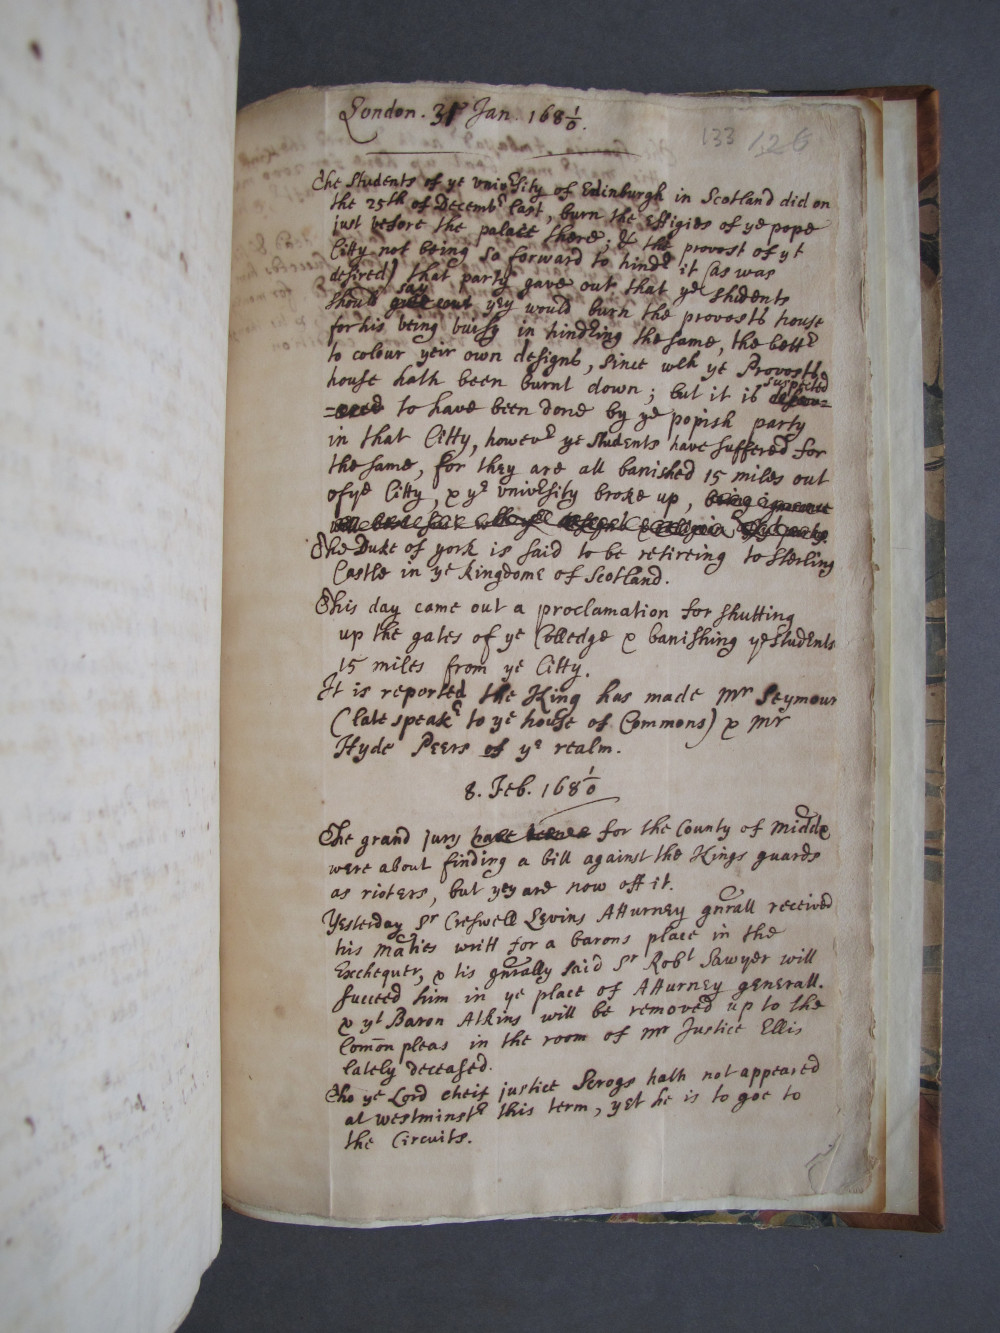 London. 31 Jan. 168 1/0.
133 126
The Students of ye university of Edinburgh in Scotland did on
the 25th of Decembr last, burn the Effigies of ye pope
just before the palace there; & the provost of yt
Citty not being so forward to hindr it (as was
desired) that party gave out that ye students
should say yey would burn the provosts house
for his being buisy in hindring the same, the bettr
to colour yeir own designs, since wch ye Provosts
house hath been burnt down; but it is suspected
to have been done by ye popish party
in that Citty, howevr ye students have suffered for
the same, for they are all banished 15 miles out
of ye Citty, & ye university broke up,
The Duke of york is said to be retireing to Sterling
Castle in ye kingdome of Scotland.
This day came out a proclamation for shutting
up the gates of ye Colledge & banishing ye students
15 miles from ye Citty.
It is reported the King has made Mr Seymour
(late speakr to ye house of Commons) & Mr
Hyde Peers of ye realm.
8. Feb. 168 1/0
The grand jury have for the County of Middx
were about finding a bill against the Kings guards
as rioters, but yey are now off it.
Yesterday Sr Creswell Levins Atturney gnrall received
his Maties writt for a barons place in the
Exchequer, & tis gnrally said Sr Robt Sawyer will
succeed him in ye place of Atturney generall.
& yt Baron Atkins will be removed up to the
Comon pleas in the room of Mr Justice Ellis
lately deceased.
Tho ye Lord cheif justice Scrogs hath not appeared
at westminstr this term, yet he is to goe to
the Circuits.